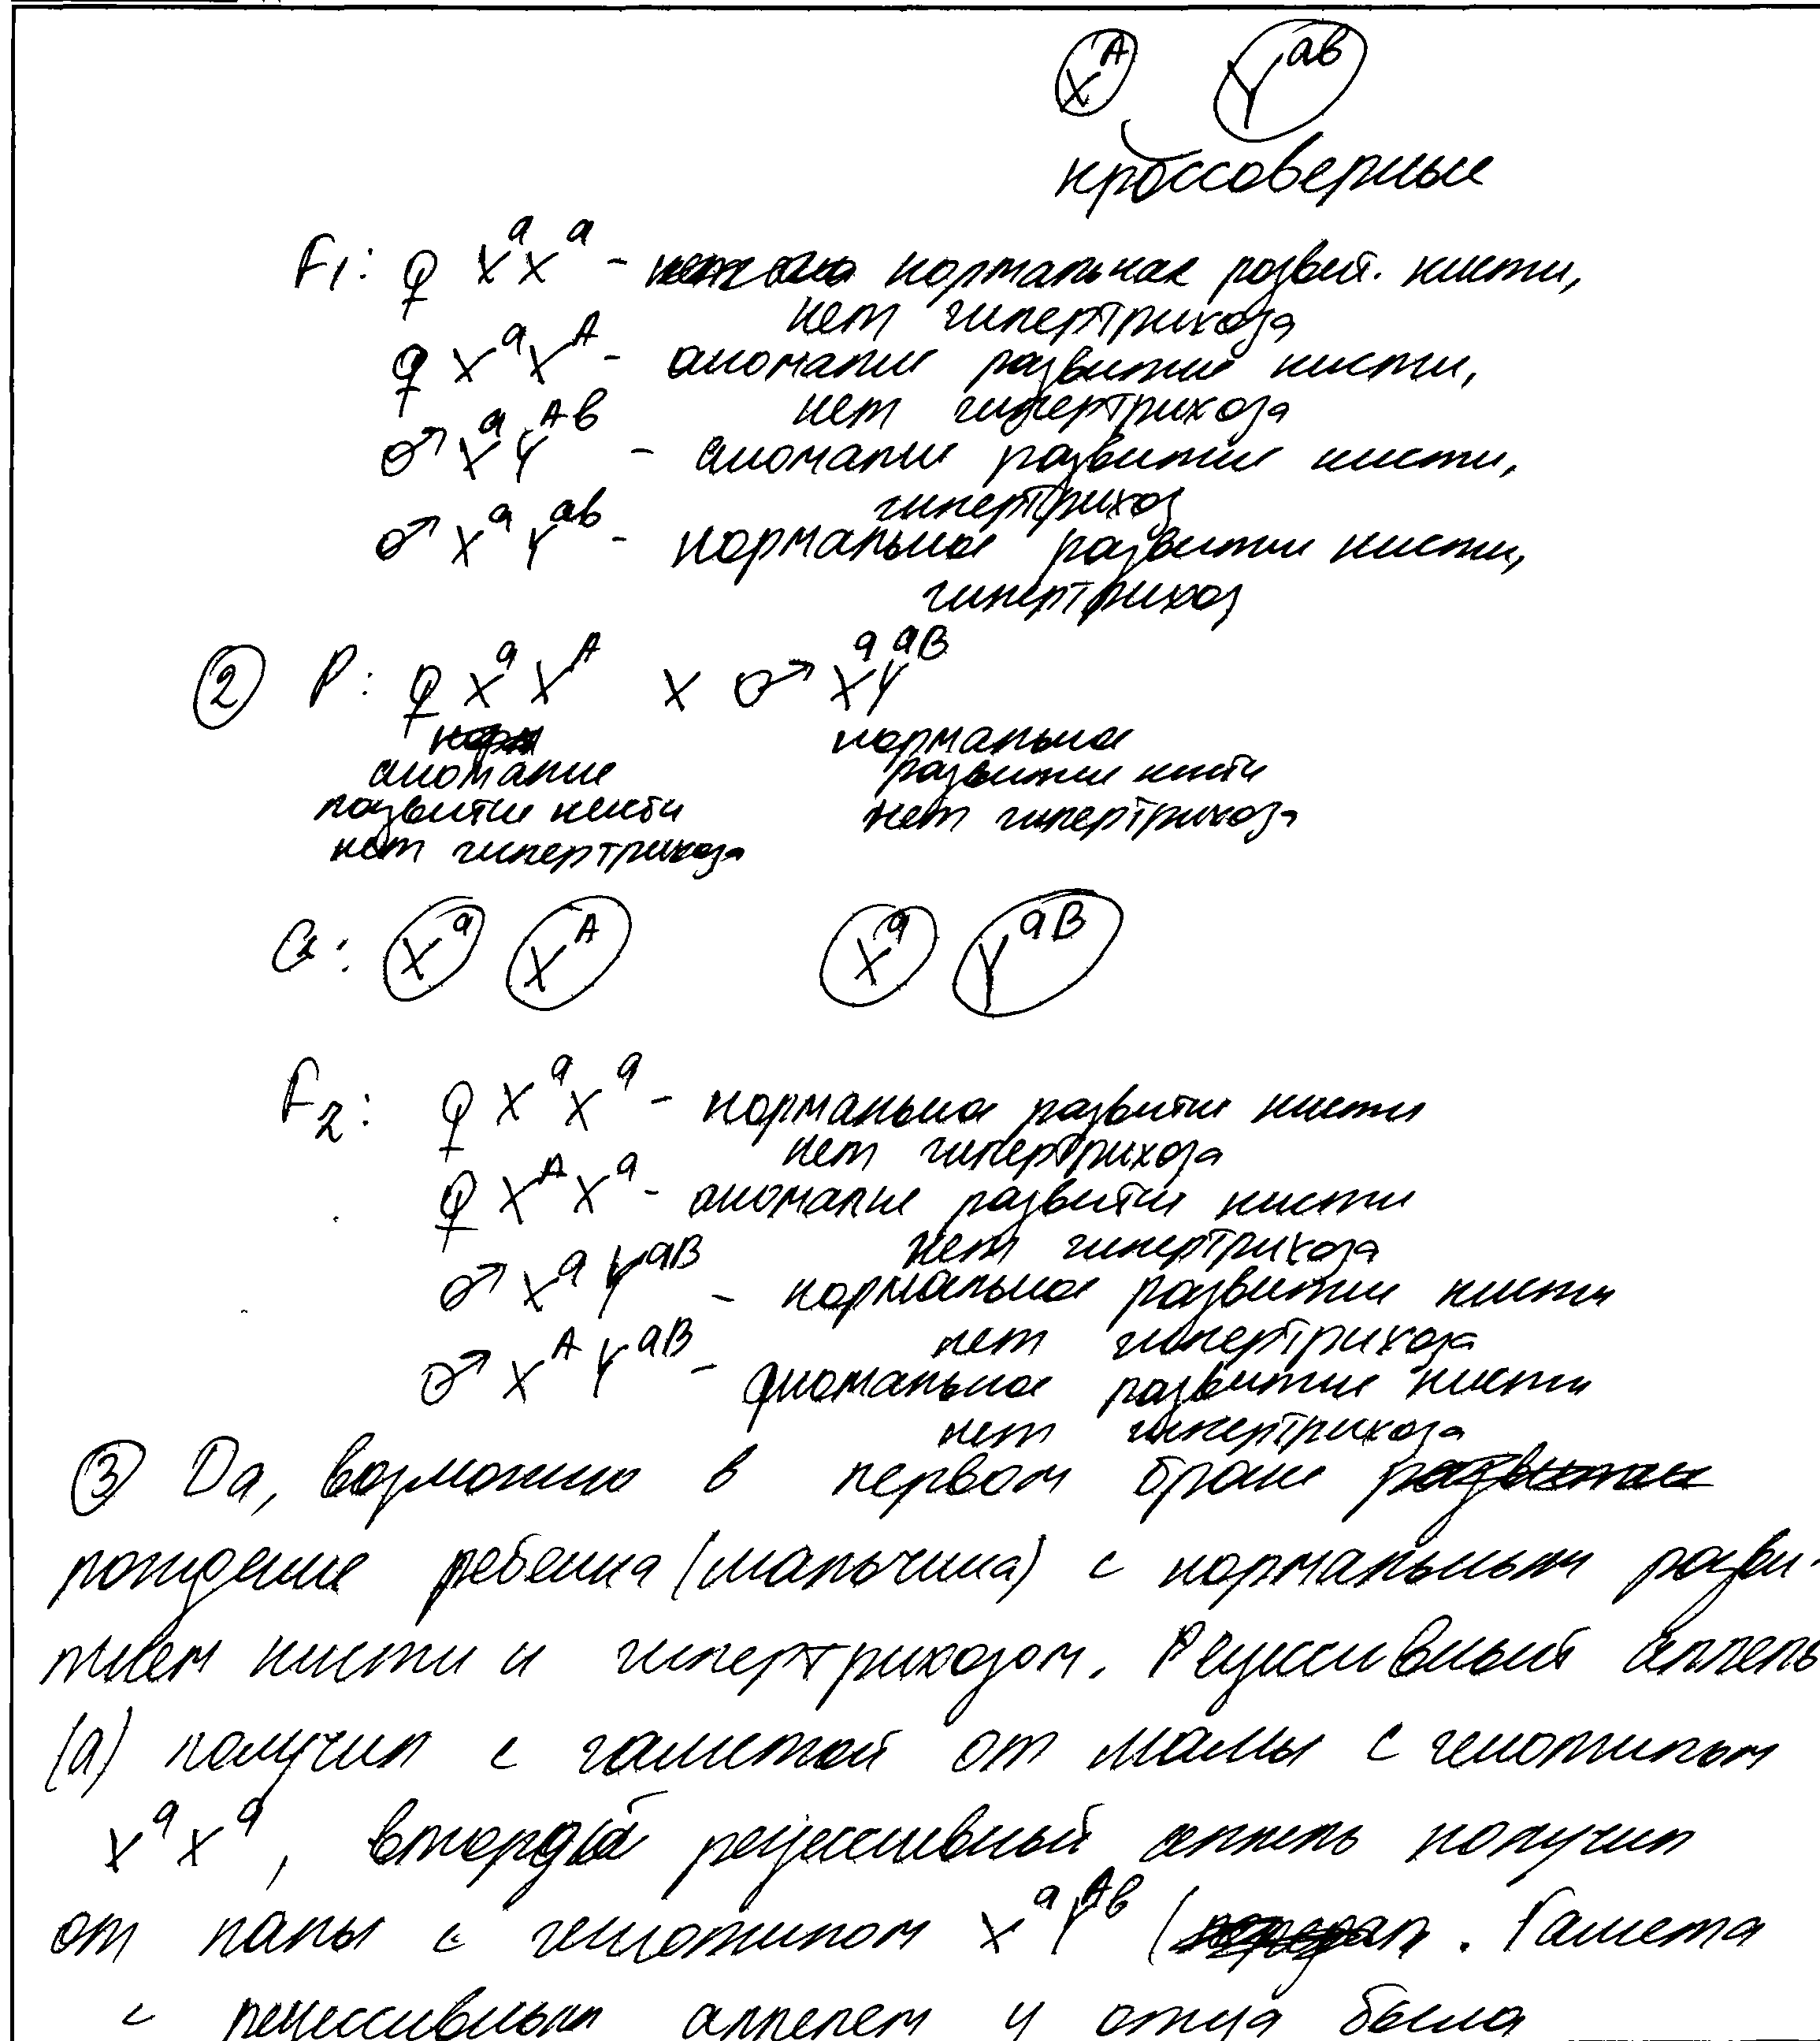 X^A Y^aв
кроссоверные
F1: ♀ X^a X^a - нормальная развит. кисти,
нет гипертрихоза
♀ X^a X^A - аномалия развития кисти,
нет гипертрихоза
♂ X^a Y^Aв - аномалия развития кисти,
гипертрихоз
♂ X^a Y^ab - нормальное развитие кисти,
гипертрихоз
② P: ♀ X^a X^A x ♂ X^a Y^aB
аномалия нормальное
развития кисти развитие кисти
нет гипертрихоза нет гипертрихоза
G: X^a X^A X^a Y^aB
F2: ♀ X^a X^a - нормальное развитие кисти
нет гипертрихоза
♀ X^A X^a - аномалия развития кисти
нет гипертрихоза
♂ X^a Y^aB - нормальное развитие кисти
нет гипертрихоза
♂ X^A Y^aB - аномальное развитие кисти
нет гипертрихоза
③ Да, возможно в первом браке
рождение ребенка (мальчика) с нормальным разви-
тием кисти и гипертрихозом. Рецессивный аллель
(а) получил с гаметой от мамы с генотипом
X^a X^a, второй рецессивный аллель получил
от папы с генотипом X^a Y^Aв ( . Гамета
с рецессивным аллелем у отца была